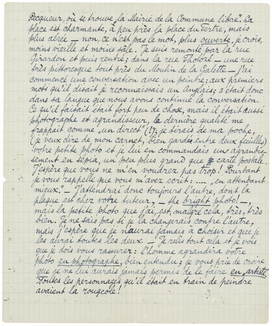 Becqueur où se trouve la Mairie de la Commune libre. La
place est charmante, à peu près la place du tertre, mais
plus aérée — non ce n'est pas le mot, plus ouverte, je crois,
moins vieille et moins sale. Je suis remonté par la rue
Girardon et puis rentré, dans la rue Tholozé — une rue
très pittoresque tout près du Moulin de la Galette — J'ai
commencé une conversation avec un peintre, aux premiers
mots qu'il disait je reconnaissais un Anglais, c'était donc
dans sa langue que nous avons continué la conversation.
Ce qu'il faisait était fort peu de chose, mais il était aussi
photographe et agrandisseur, la dernière qualité me
frappait comme "un direct" (!), je tirais de ma poche,
(je veux dire de mon carnet, bien gardée entre deux feuilles)
votre petite photo et je lui en commandais une agrandis-
sement en sépia, un peu plus grand que carte postale.
J'espère que vous ne m'en voudrez pas trop! Surtout
je vous rappelle que vous m'avez écrit: "... en attendant
mieux". J'attendrai donc toujours l'autre, dont la
plaque est chez votre tuteur, — the bright photo! —,
mais la petite photo que j'ai, est, malgré cela, très, très
bien. Je ne sais pas si je la changerais contre l'autre,
mais j'espère que je n'aurai jamais à choisir et que je
les aurai toutes les deux. — Je relis tout cela et je vois
que je dois vous rassurer: L'homme agrandira votre
photo en photographe, bien entendu; je vous prie de croire
que je ne lui aurais jamais permis de le faire en artiste.
Toutes les personnages qu'il était en train de peindre
avaient la rougeole!